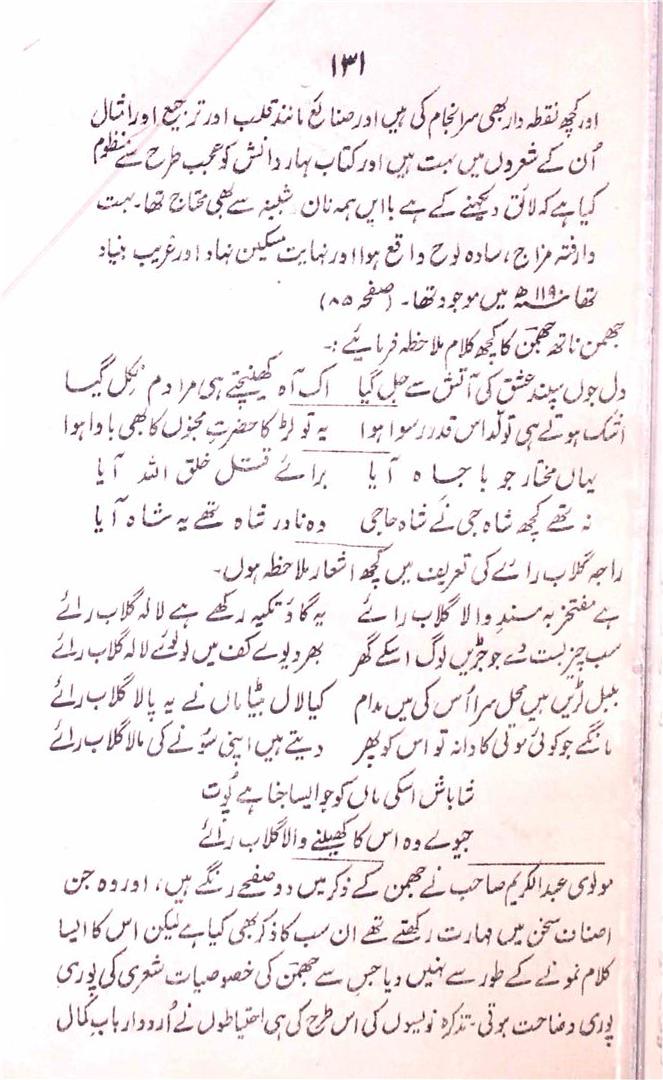 ۱۳۱
اور کچھ نقطہ دار بھی سرانجام کی ہیں اور صنائع مانند قلب اور ترجیع اور امثال
اُن کے شعروں میں بہت ہیں اور کتاب بہار دانش کو عجب طرح سے منظوم
کیا ہے کہ لائق دیکھنے کے ہے با ایں ہمہ نان شبینہ سے بھی محتاج تھا۔ بہت
وارفتہ مزاج، سادہ لوح واقع ہوا اور نہایت مسکین نہاد اور غریب بنیاد
تھا ۱۱۹۰ھ میں موجود تھا۔ (صفحہ ۸۵)
جھمن ناتھ جھمنؔ کا کچھ کلام ملاحظہ فرمائیے:۔
دل جوں سپند عشق کی آتش سے جل گیا اک آہ کھینچتے ہی مرا دم نکل گیا
اشک ہوتے ہی تولّد اس قدر رسوا ہوا یہ تو لڑکا حضرتِ مجنوں کا بھی باوا ہوا
یہاں مختار جو با جاہ آیا برائے قتل خلق اللہ آیا
نہ تھے کچھ شاہ جی نَے شاہ حاجی وہ نادر شاہ تھے یہ شاہ آیا
راجہ گلاب رائے کی تعریف میں کچھ اشعار ملاحظہ ہوں۔
ہے مفتخر بہ مسندِ والا گلاب رائے یہ گاؤ تکیہ رکھے ہے لالہ گلاب رائے
سب چیز بست دے جو جڑیں لوگ اسکے گھر بھر دیوے کف میں لولوئے لالہ گلاب رائے
بلبل لڑیں ہیں محل سرا اُس کی میں مدام کیا لال بیٹا ماں نے یہ پالا گلاب رائے
مانگے جو کوئی موتی کا دانہ تو اس کو پھر دیتے ہیں اپنی سُونے کی مالا گلاب رائے
شاباش اسکی ماں کو جو ایسا جنا ہے پُوت
جیوے وہ اس کا کھیلنے والا گلاب رائے
مولوی عبدالکریم صاحب نے جھمن کے ذکر میں دو صفحے رنگے ہیں، اور وہ جن
اصناف سخن میں مہارت رکھتے تھے ان سب کا ذکر بھی کیا ہے لیکن اس کا ایسا
کلام نمونے کے طور سے نہیں دیا جس سے جھمنؔ کی خصوصیات شعری کی پوری
پوری وضاحت ہوتی۔ تذکرہ نویسوں کی اس طرح کی ہی احتیاطوں نے اُردو ارباب کمال